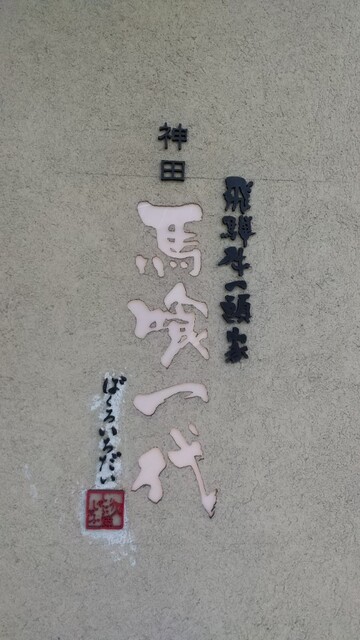 飛騨牛一頭家
神田
馬喰一代
ばくろいちだい